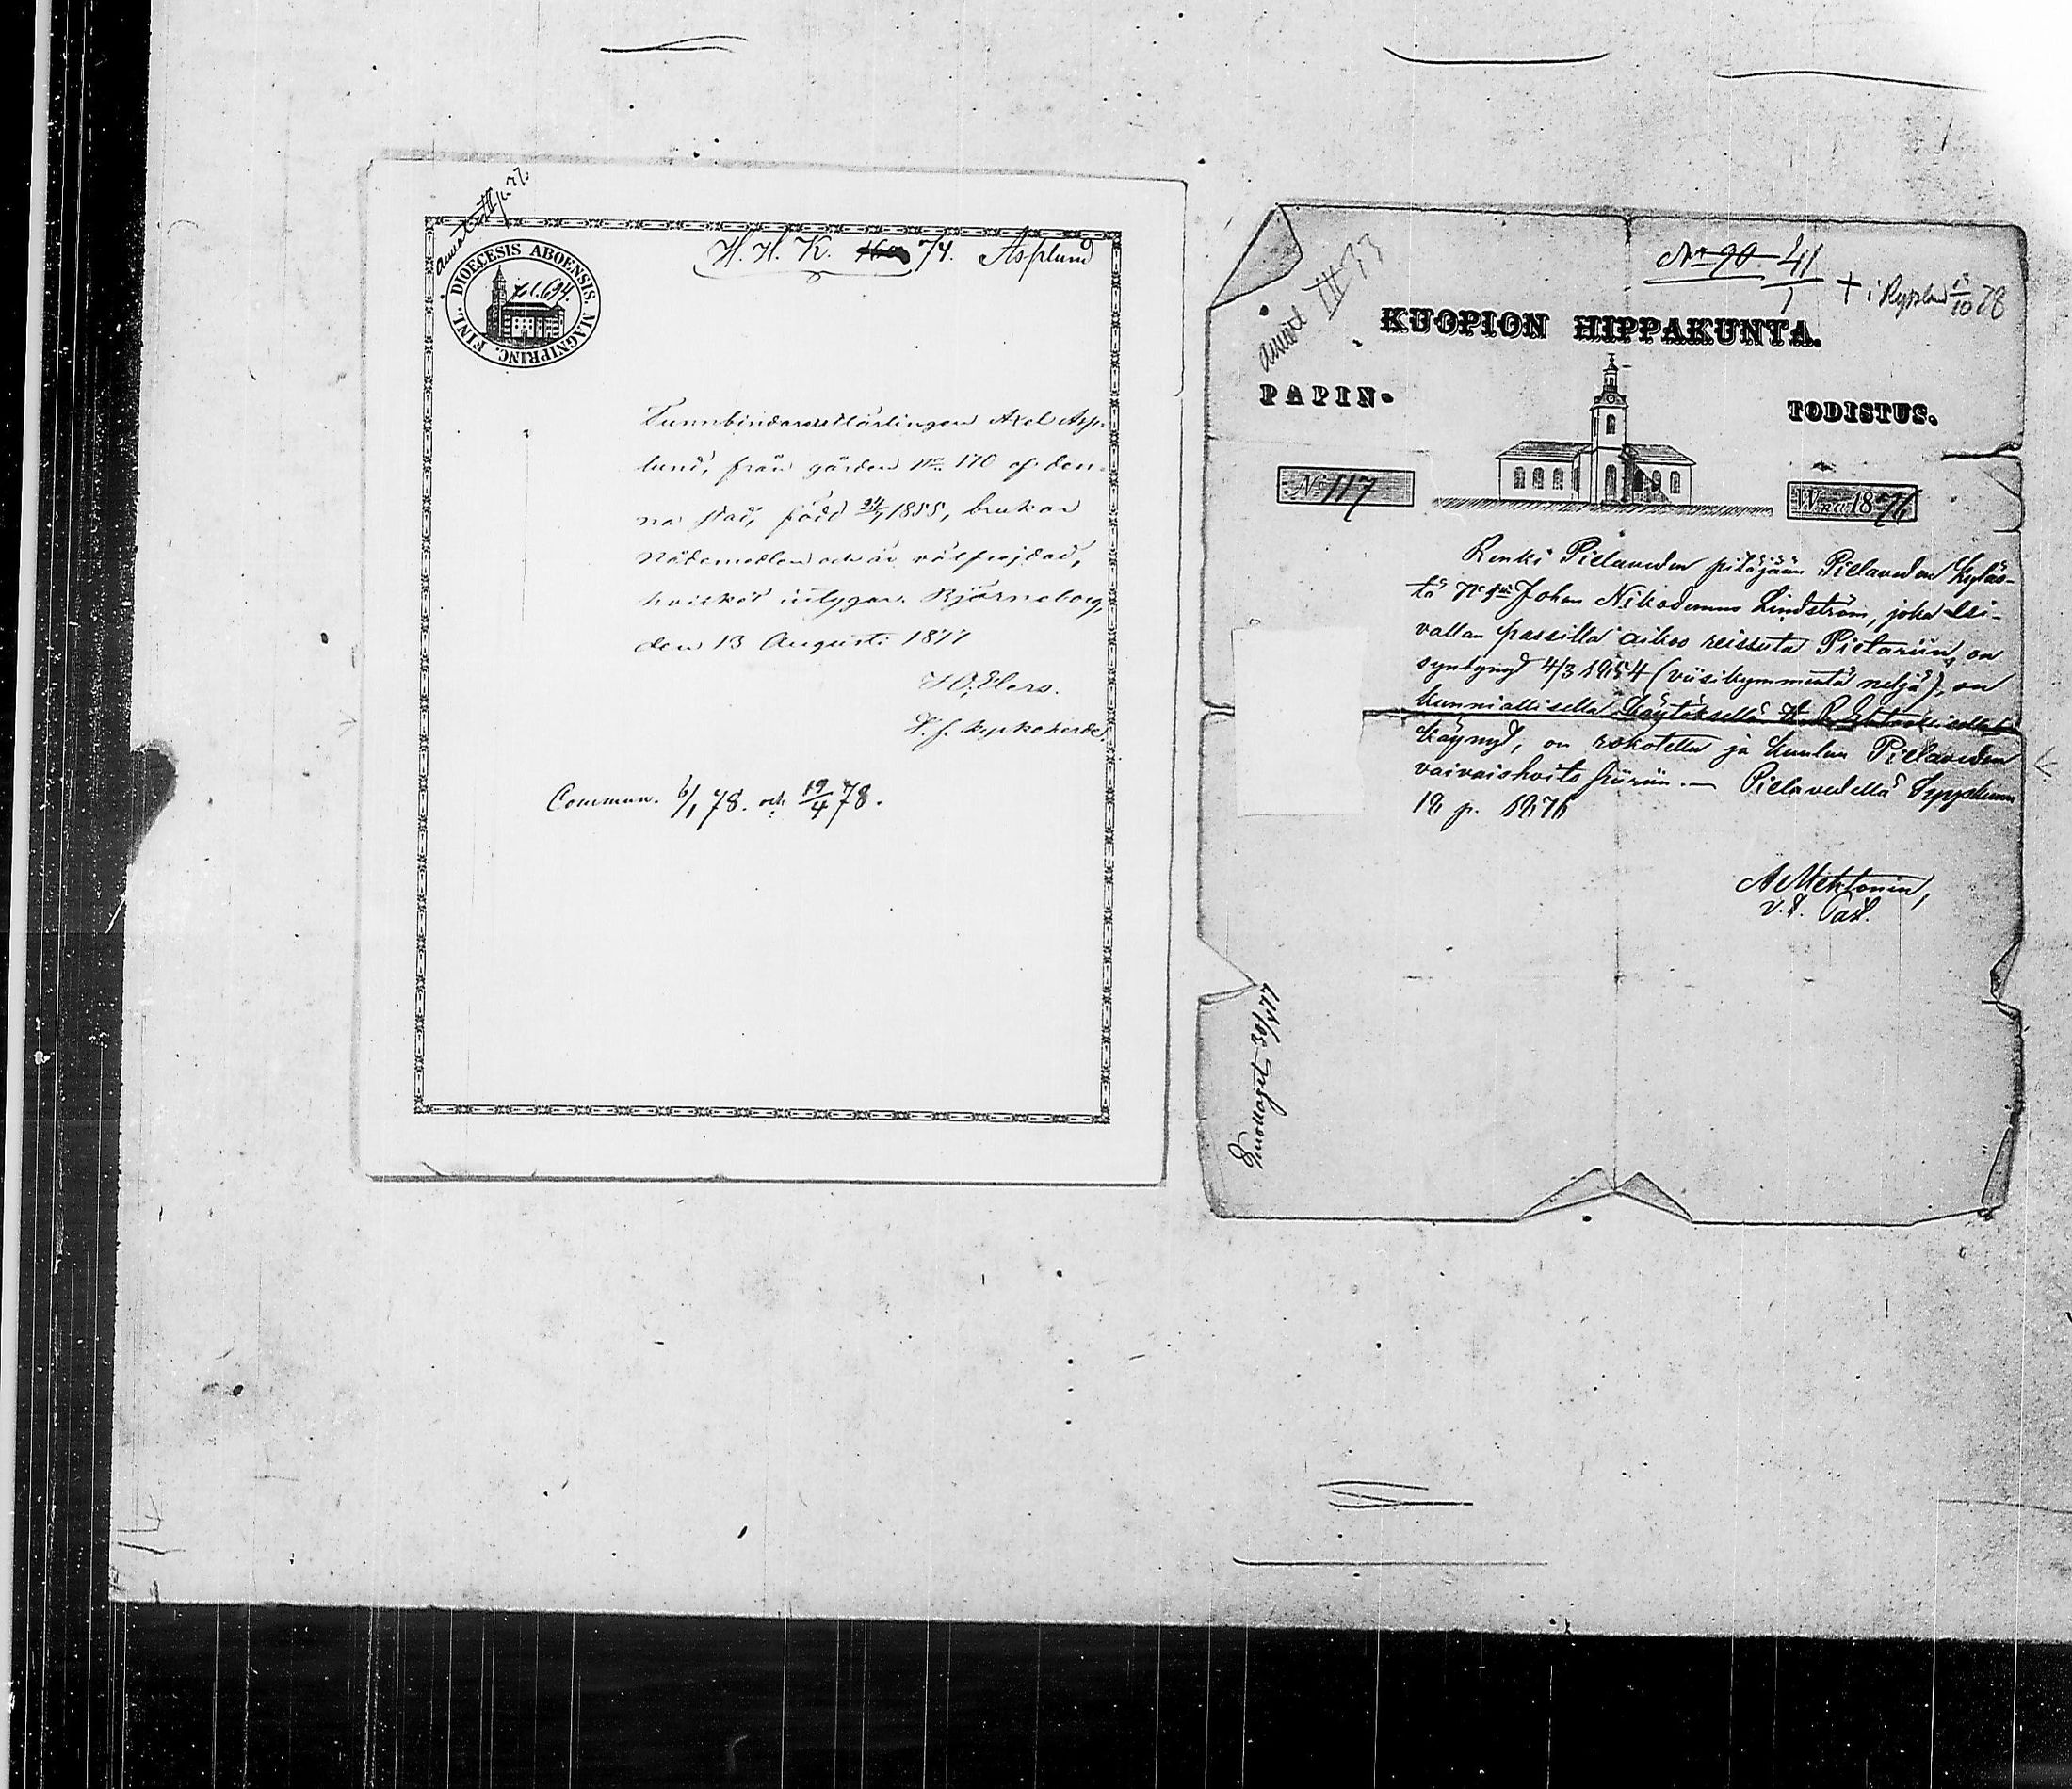 H. H. K. 74. Asplund
DIOECESIS ABOENSIS. MAGNIPRINC. FINL.
fol. 694.
Tunnbindarelärlingen Axel Asp-
lund, från gården No. 170 af den-
na stad, född 24/7 1855, brukar
Nådemedlen och är välfrejdad,
hvilket intygar. Björneborg,
den 13 Augusti 1877
Elers.
v. f. kyrkoherde.
Commun. 6/1 78. och 19/4 78.
No 90 41
+ i 10 78
annot III 33
KUOPION HIPPAKUNTA.
PAPIN-
TODISTUS.
No 117
Wna 1876
Renki Pielaveden pitäjään Pielaveden kyläs-
tä No Johan Nikodemus Lindström, joka Esi-
vallan passilla aikoo reissuta Pietariin, on
syntynyt 4/3 1854 (viisikymmentä neljä), on
kunniallisella käytöksellä H. P. Ehtoollisella
käynyt, on rokotettu ja kuuluu Pielaveden
vaivaishoito piiriin. — Pielavedellä Syyskuun
18 p. 1876
A Mehtonen,
v. t. Past.
Emottaget 30/4 77